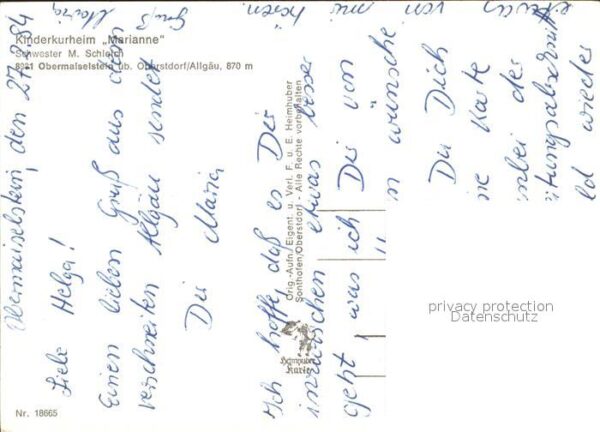 Kinderkurheim „Marianne"
Schwester M. Schleich
8981 Obermaiselstein üb. Oberstdorf/Allgäu, 870 m
Obermaiselstein, den 27.2.84
Liebe Helga!
Einen lieben Gruß aus dem
verschneiten Allgäu sendet
Dir Maria
Ich hoffe, daß es Dir
inzwischen etwas besser
geht, was ich Dir von
wünsche
Du Dich
Karte
bei der
ld wieder
etwas von mir hören.
Gruß
Maria
Orig.-Aufn., Eigent. u. Verl. F. u. E. Heimhuber
Sonthofen/Oberstdorf - Alle Rechte vorbehalten
Heimhuber
Karte
Nr. 18665
privacy protection
Datenschutz